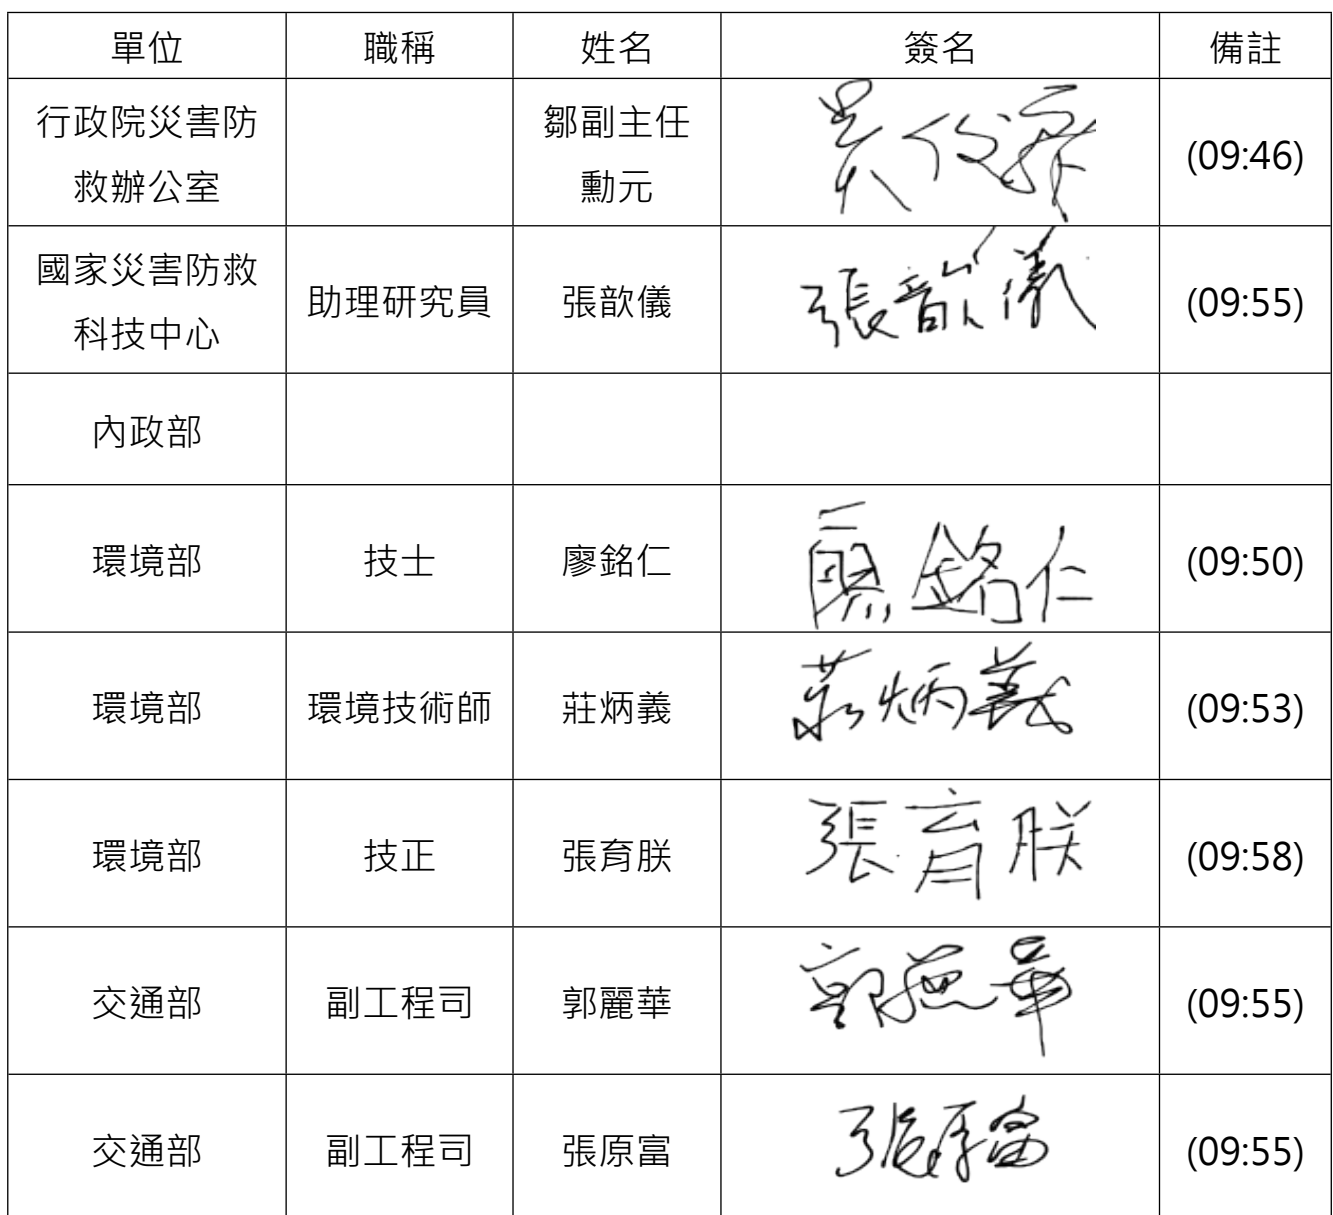 單位 職稱 姓名 簽名 備註
行政院災害防
救辦公室
鄒副主任
勳元
(09:46)
國家災害防救
科技中心
助理研究員
張歆儀
張歆儀
(09:55)
內政部
環境部 技士 廖銘仁 廖銘仁 (09:50)
環境部 環境技術師 莊炳義 莊炳義 (09:53)
環境部 技正 張育朕 張育朕 (09:58)
交通部 副工程司 郭麗華 郭麗華 (09:55)
交通部 副工程司 張原富 張原富 (09:55)